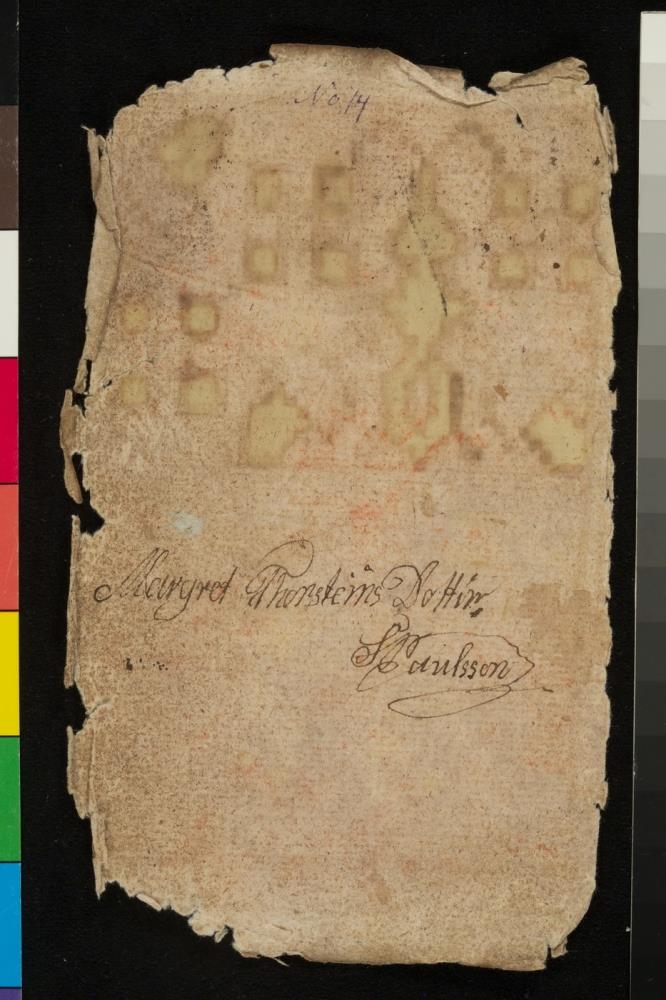 No, 14
Margret Thorsteins Dottir,
S Paulsson